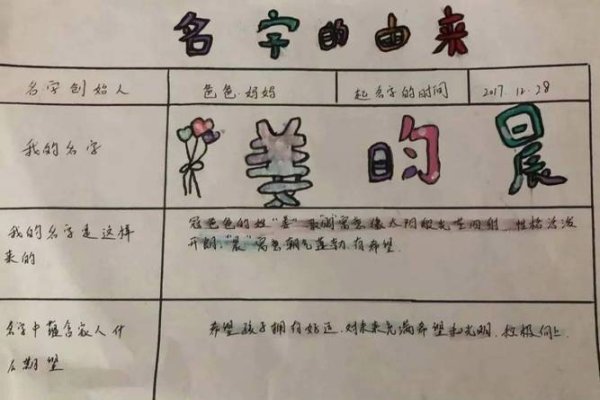 名字的由来
名字创始人 爸爸.妈妈 起名字的时间 2017.12.28
我的名字 姜昀晨
我的名字是这样
来的
冠爸爸的姓“姜” 取“昀”寓意像太阳般光芒四射,性格活泼
开朗,“晨”寓意朝气蓬勃,有希望
名字中蕴含家人什
么期望
希望孩子拥有好运,对未来充满希望和光明,积极向上.